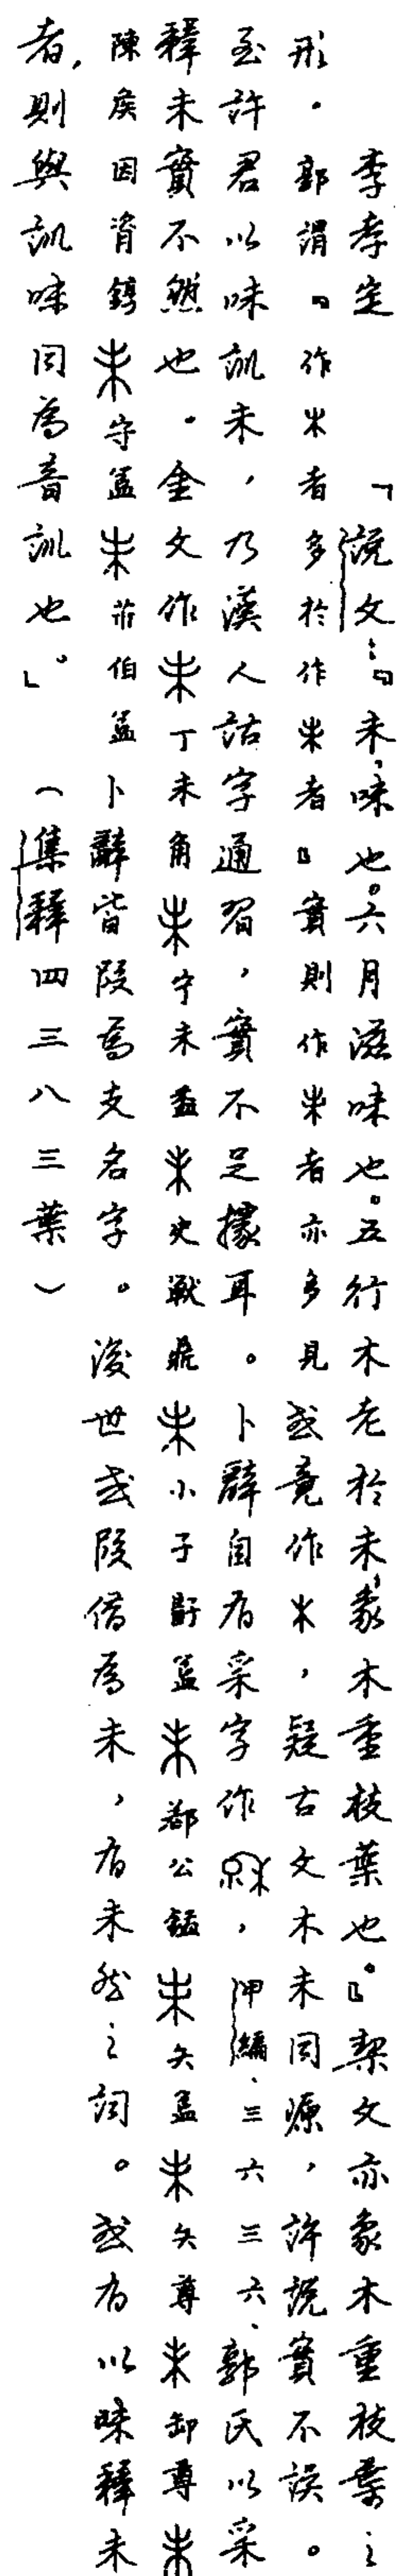 李孝定　「說文：『未，味也。六月滋味也。五行木老於未，象木重枝葉也。』栔文亦象木重枝葉之
形。郭謂『作木者多於作未者』實則作未者亦多見或竟作木，疑古文木未同源，許說實不誤。
至許君以味訓未，乃漢人詁字通習，實不足據耳。卜辭自有采字作，甲編、三六三六、郭氏以采
釋未實不然也。金文作丁未角守未盉史獸鼎小子𠭯簋都公鋘矢簋矢尊卸尊
陳侯因𬱖錞守簋芇伯簋卜辭皆叚為支名字。後世或叚借為未，有未然之詞。或有以味釋未
者，則與訓味同為音訓也。」（集釋四三八三葉）